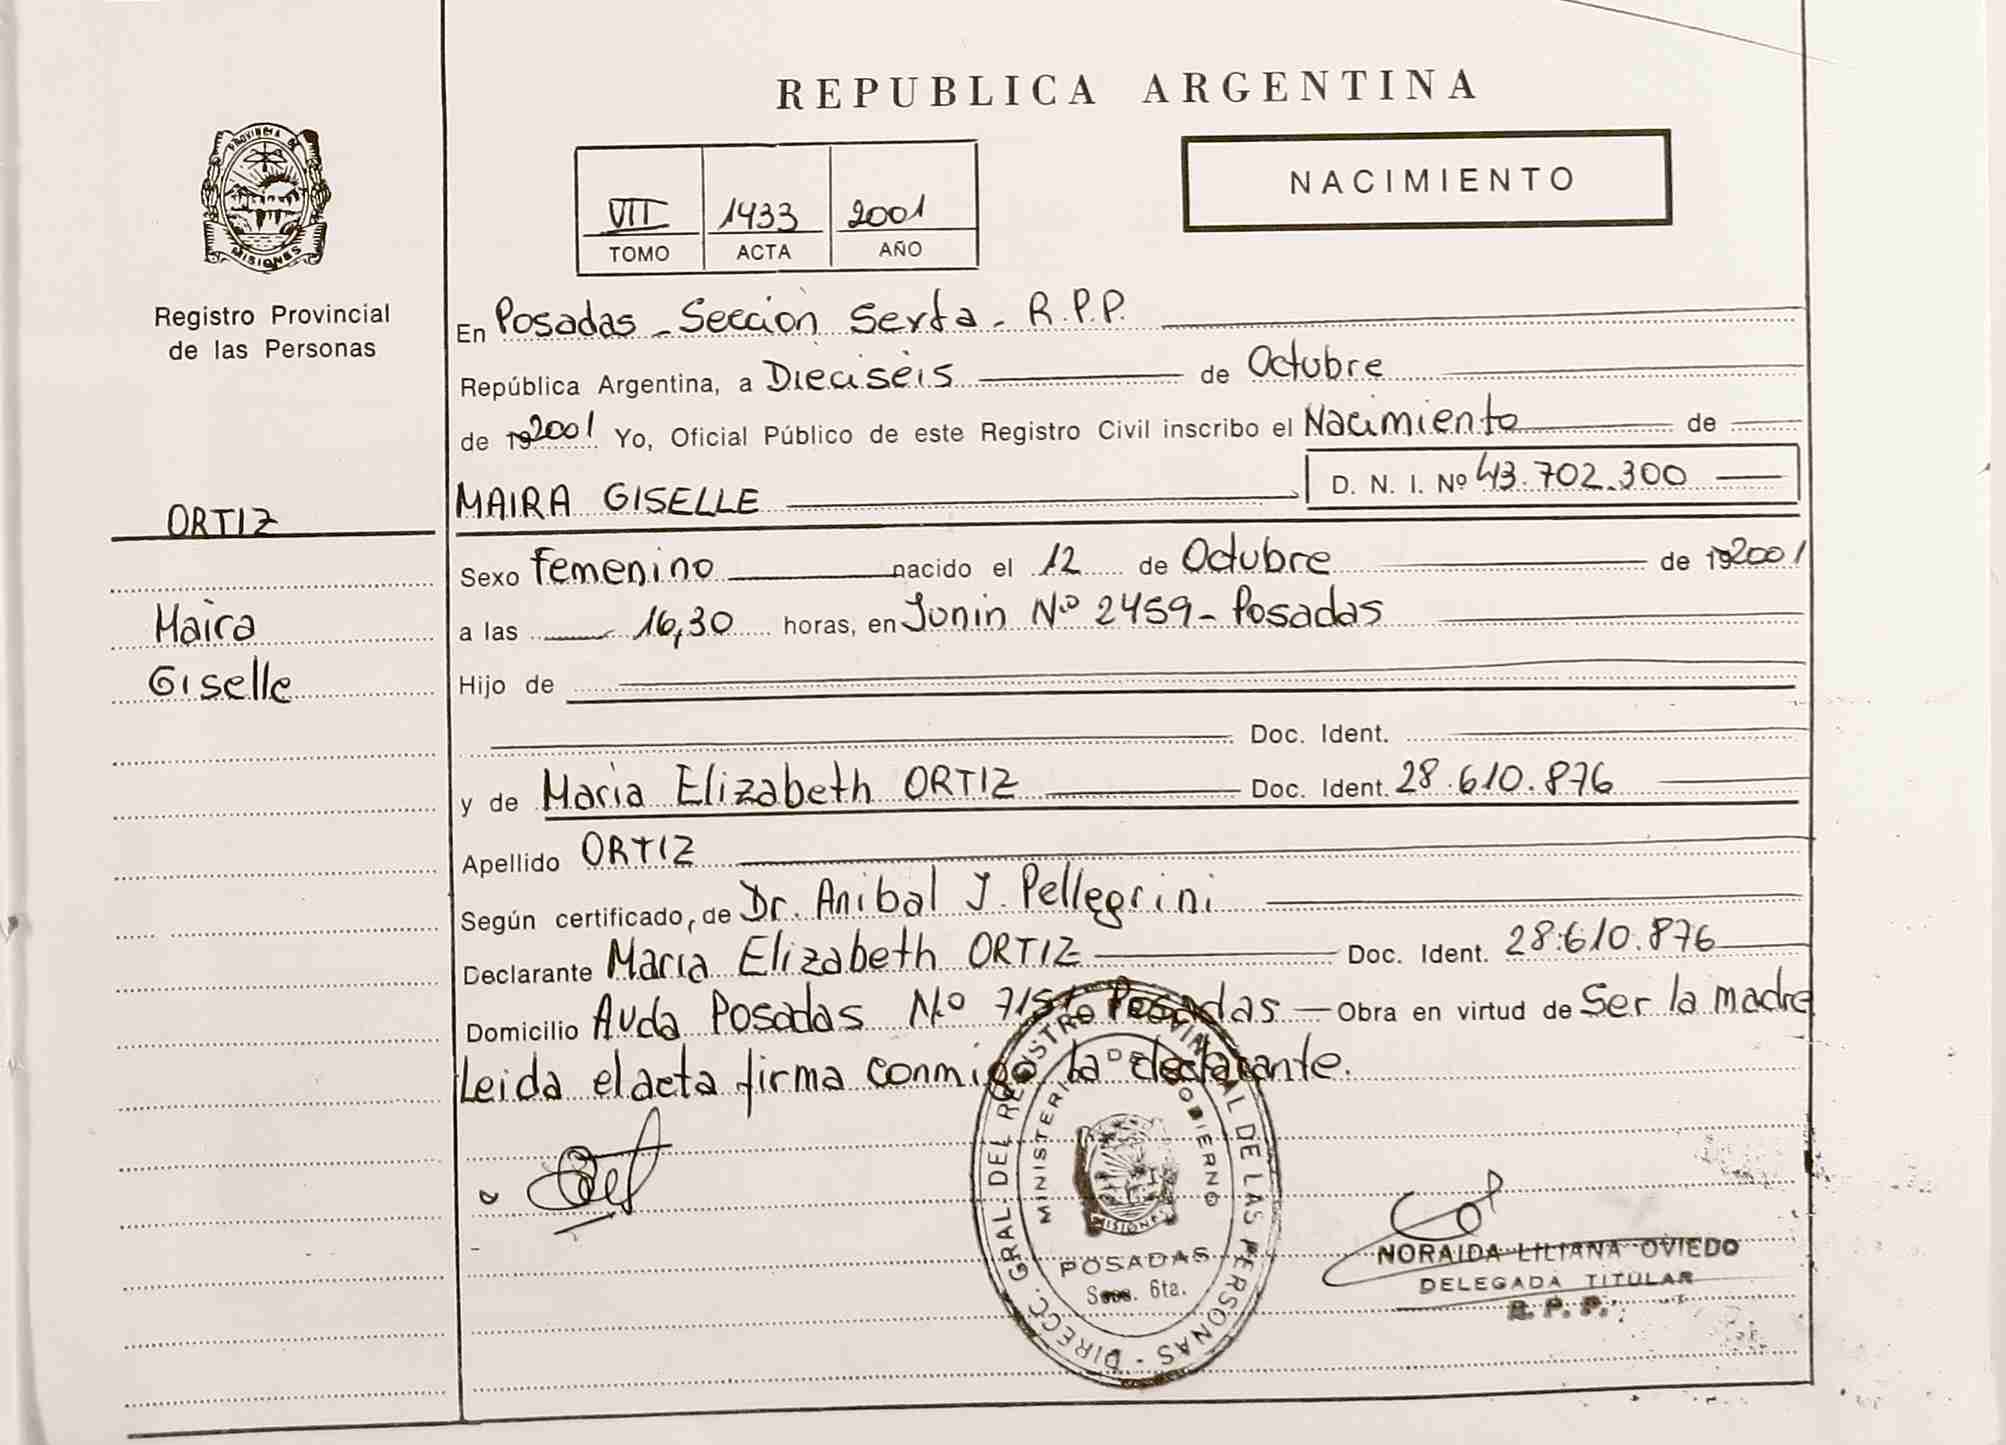 REPUBLICA ARGENTINA
PROVINCIA DE
MISIONES
Registro Provincial
de las Personas
VII 1433 2001
TOMO ACTA AÑO
NACIMIENTO
En Posadas - Sección Sexta - R.P.P.
República Argentina, a Dieciséis de Octubre
de 192001 Yo, Oficial Público de este Registro Civil inscribo el Nacimiento de
MAIRA GISELLE D. N. I. Nº 43.702.300
ORTIZ
Maira
Giselle
Sexo Femenino nacido el 12 de Octubre de 192001
a las 16,30 horas, en Junin Nº 2459 - Posadas
Hijo de
Doc. Ident.
y de Maria Elizabeth ORTIZ Doc. Ident. 28.610.876
Apellido ORTIZ
Según certificado, de Dr. Anibal J. Pellegrini
Declarante Maria Elizabeth ORTIZ Doc. Ident. 28.610.876
Domicilio Avda Posadas Nº Posadas — Obra en virtud de Ser la madre
Leida el acta firma conmigo la declarante.
DIRECC. GRAL. DEL REGISTRO PROVINCIAL DE LAS PERSONAS
MINISTERIO DE GOBIERNO
MISIONES
POSADAS
Secc. 6ta.
NORAIDA LILIANA OVIEDO
DELEGADA TITULAR
R. P. P.